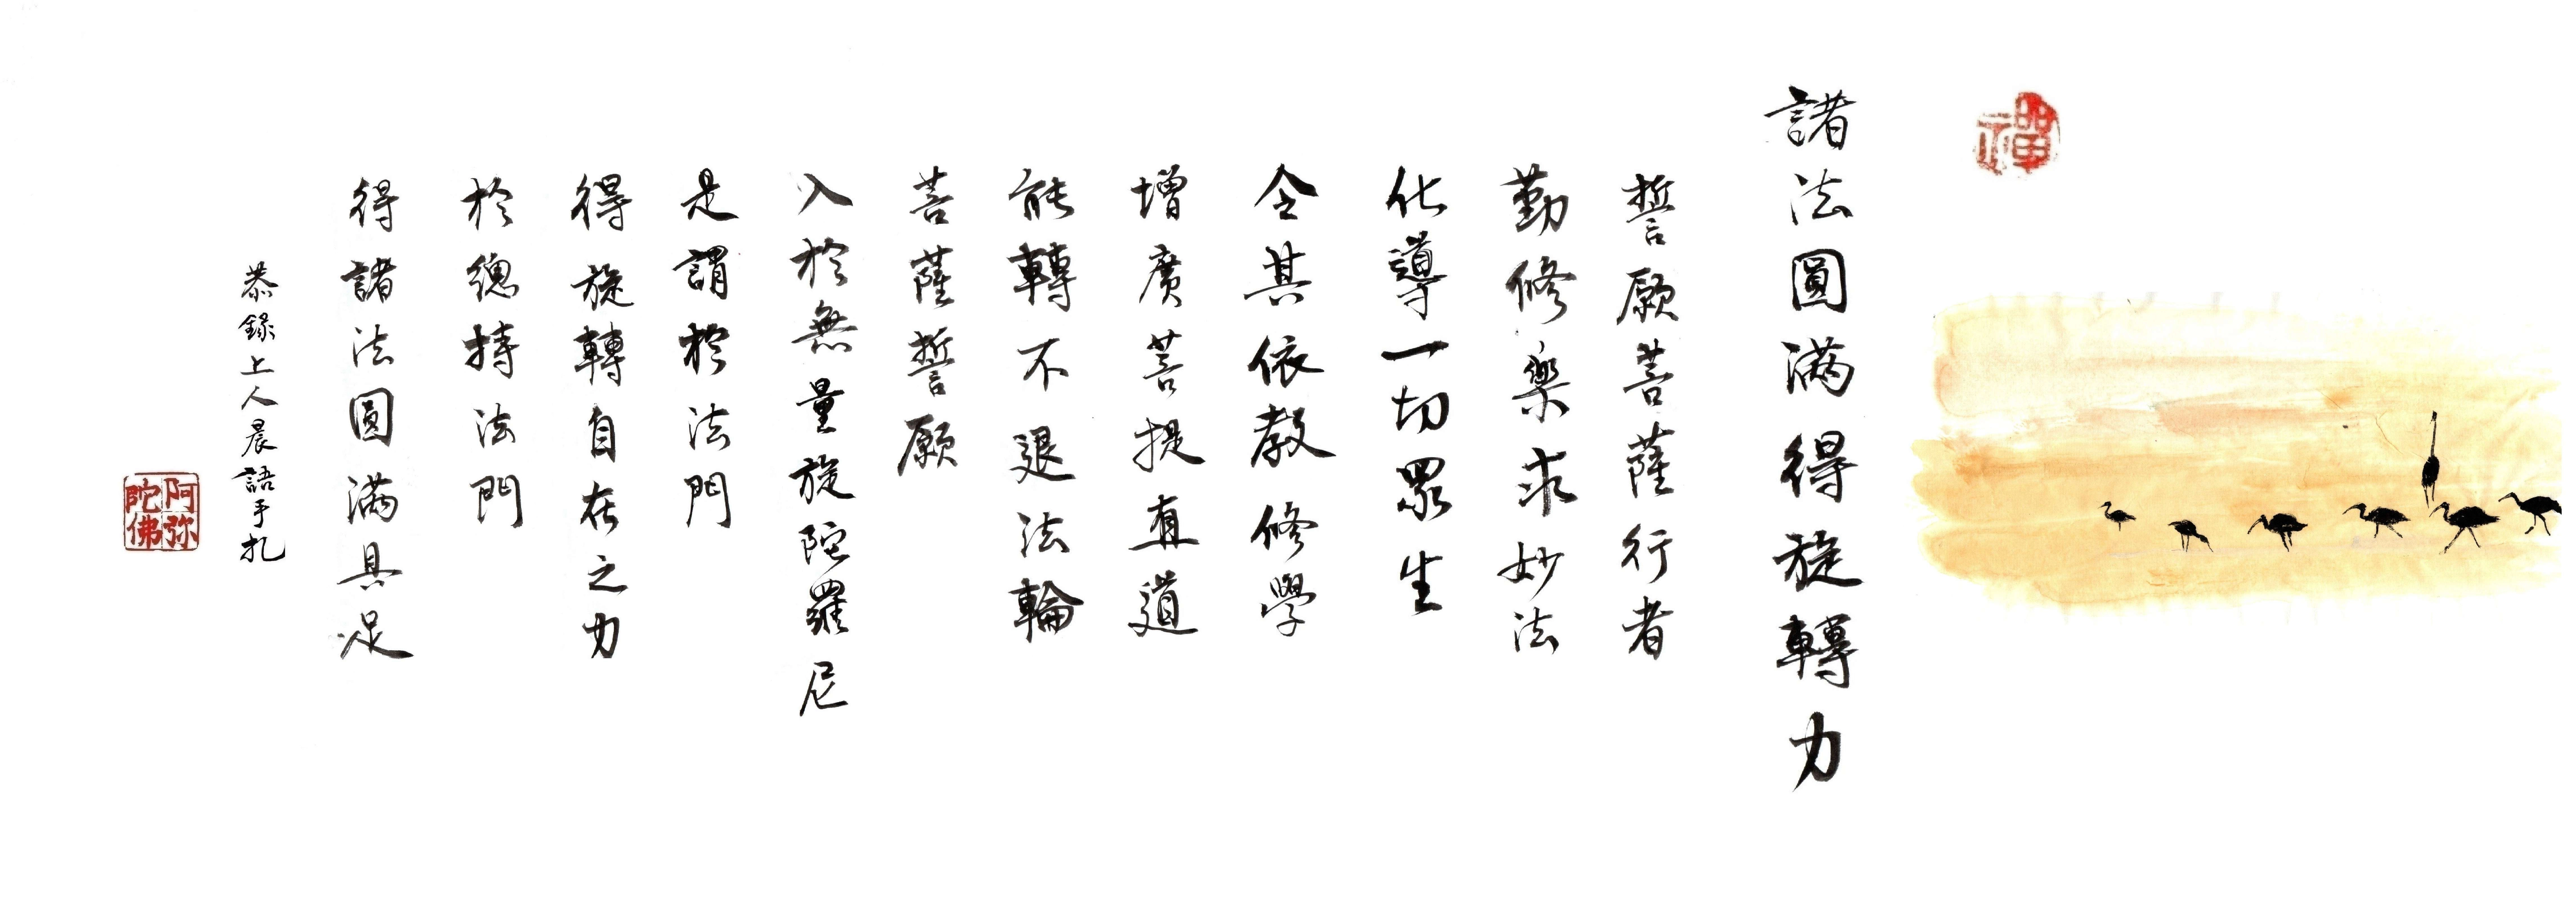 禪
諸法圓滿得旋轉力
誓願菩薩行者
勤修樂求妙法
化導一切眾生
令其依教修學
增廣菩提直道
能轉不退法輪
菩薩誓願
入於無量旋陀羅尼
是謂於法門
得旋轉自在之力
於總持法門
得諸法圓滿具足
恭錄上人晨語手札
阿弥
陀佛